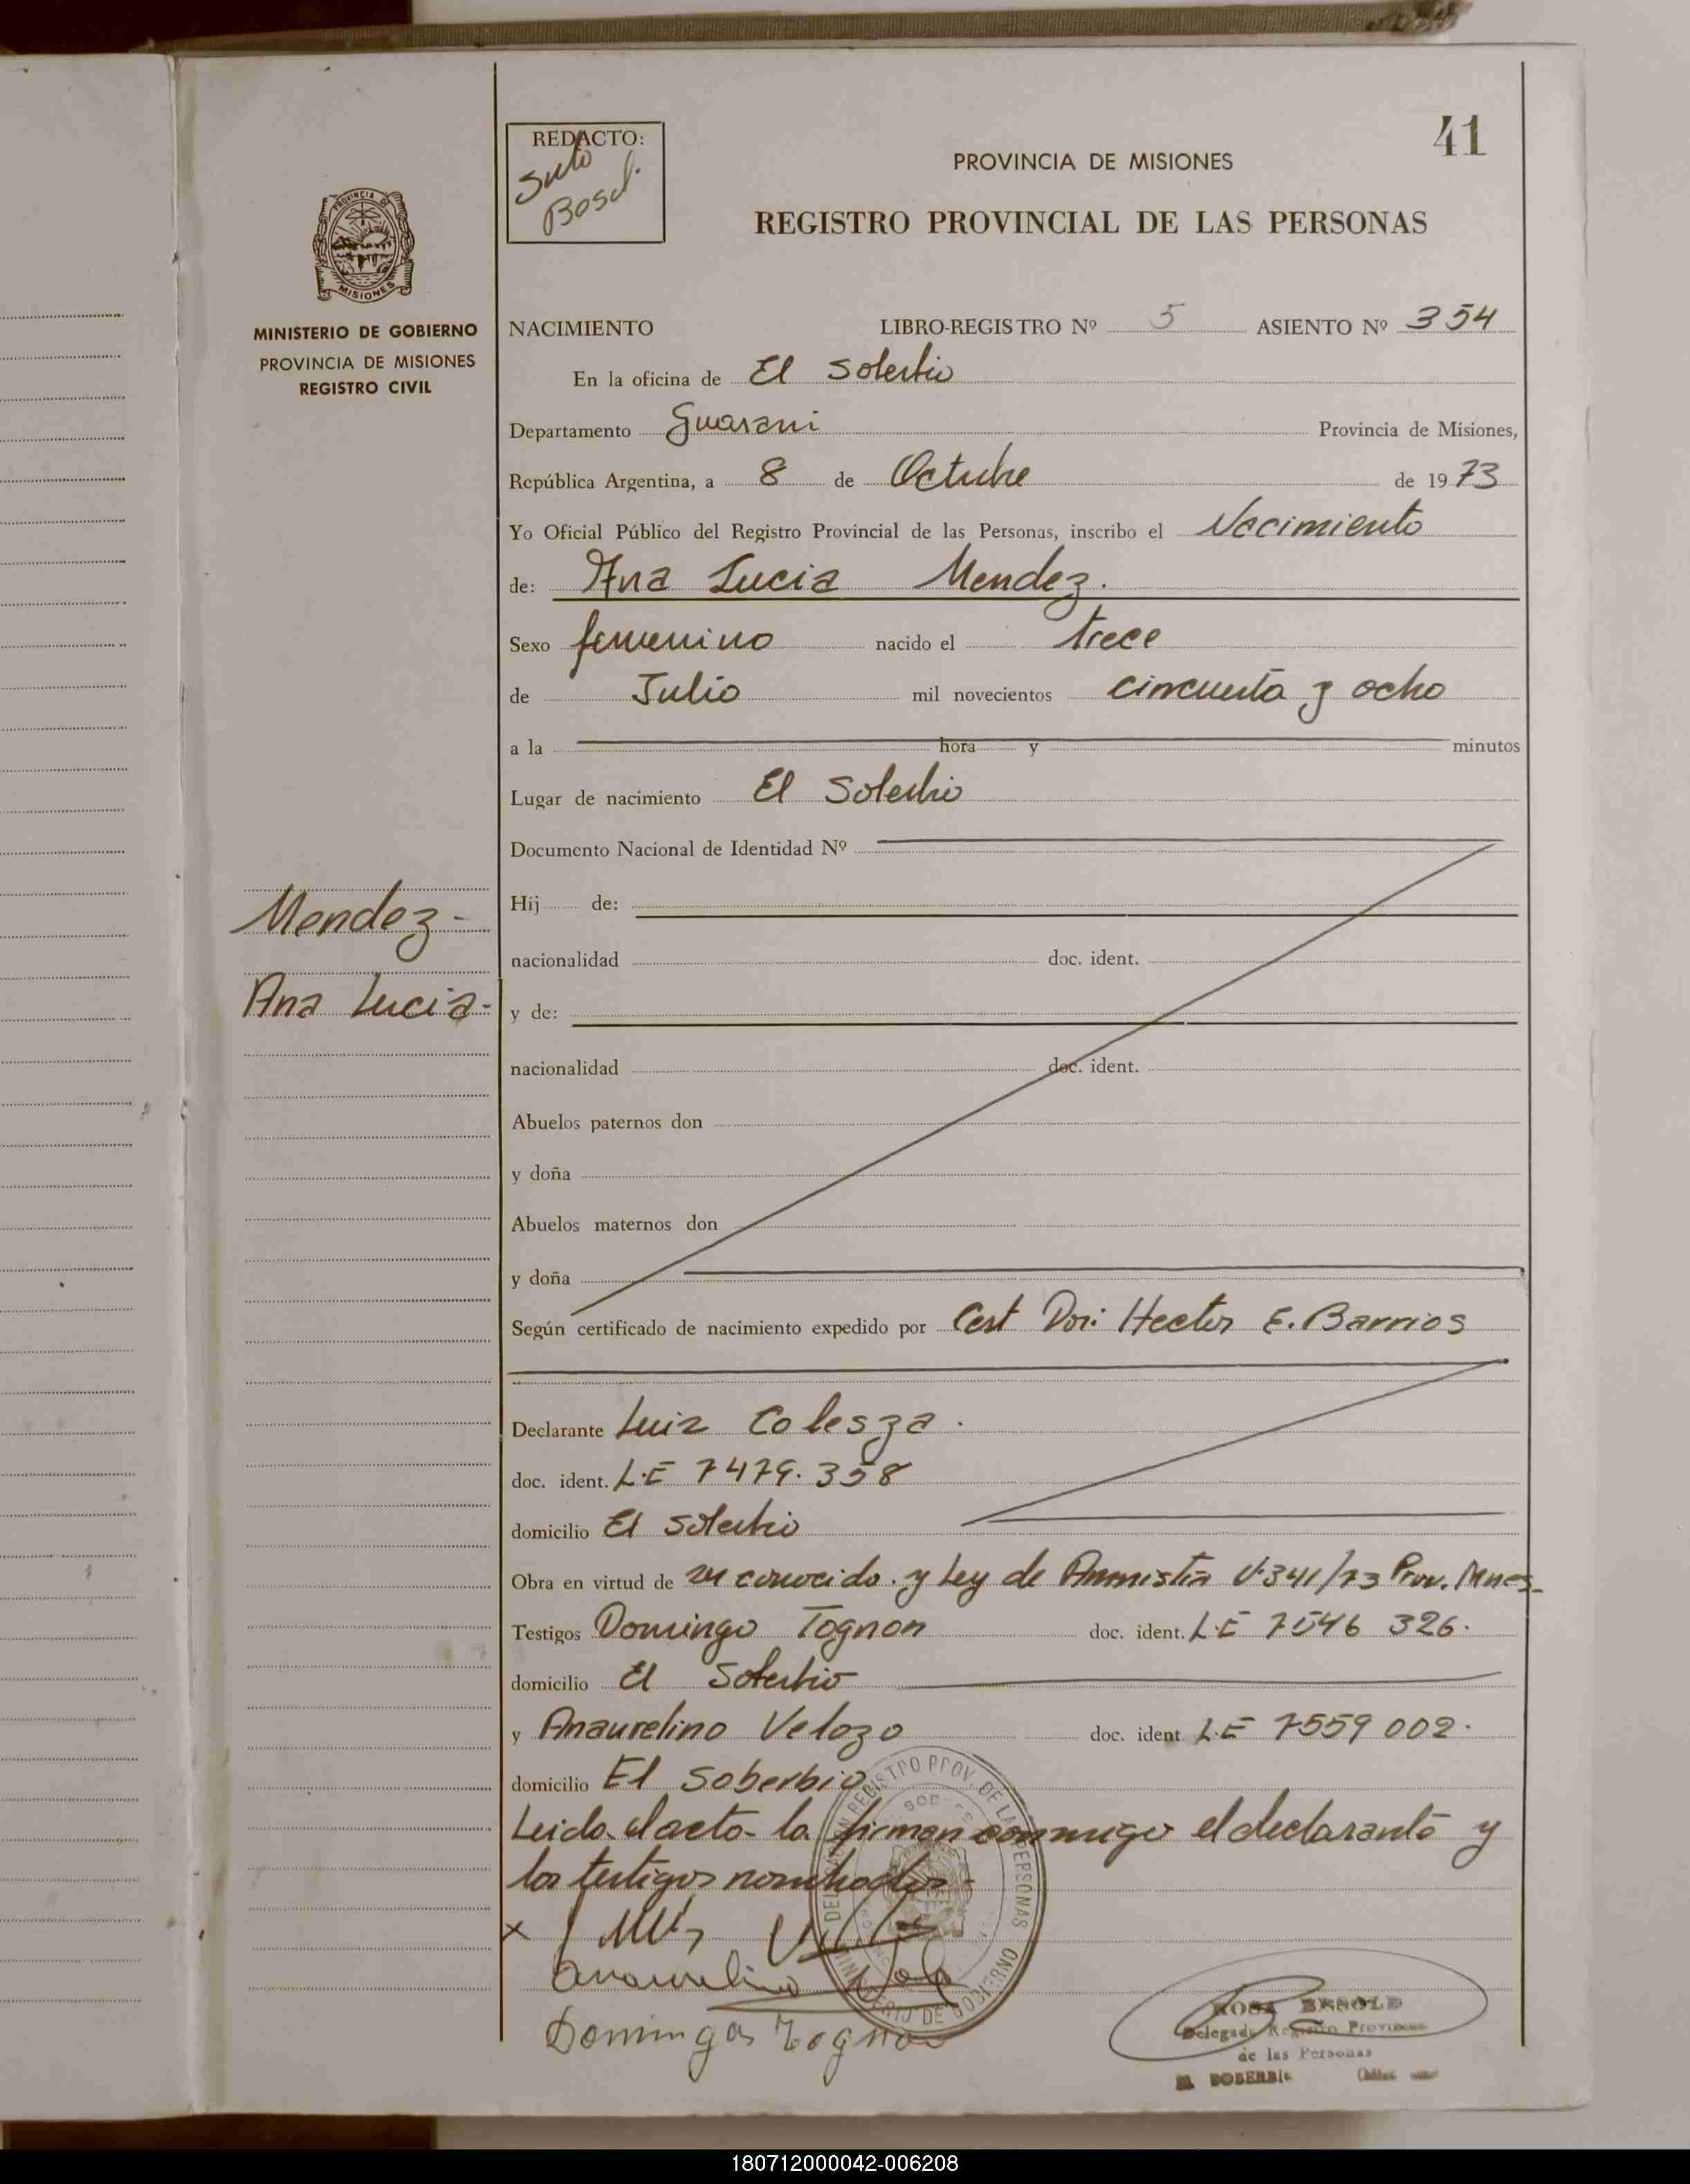 41
REDACTO:
PROVINCIA DE MISIONES
REGISTRO PROVINCIAL DE LAS PERSONAS
MISIONES
MINISTERIO DE GOBIERNO
PROVINCIA DE MISIONES
REGISTRO CIVIL
NACIMIENTO LIBRO-REGISTRO Nº 5 ASIENTO Nº 354
En la oficina de El Soberbio
Departamento Guarani Provincia de Misiones,
República Argentina, a 8 de Octubre de 1973
Yo Oficial Público del Registro Provincial de las Personas, inscribo el Nacimiento
de: Ana Lucia Mendez.
Sexo femenino nacido el trece
de Julio mil novecientos cincuenta y ocho
a la hora y minutos
Lugar de nacimiento El Soberbio
Documento Nacional de Identidad Nº
Mendez-
Hij de:
nacionalidad doc. ident.
Ana Lucia-
y de:
nacionalidad doc. ident.
Abuelos paternos don
y doña
Abuelos maternos don
y doña
Según certificado de nacimiento expedido por Cert Dor: Hector E. Barrios
Declarante Luiz
doc. ident. L.E 7479.358
domicilio El Soberbio
Obra en virtud de conocido y Ley de Amnistia Nº 341/73 Prov. Mnes-
Testigos Domingo Tognon doc. ident. L.E 7546 326.
domicilio El Soberbio
y Anaurelino Velozo doc. ident. L.E 7559 002.
domicilio El Soberbio
Leido el acto la firman conmigo el declarante y
los testigos
Domingos Tognon
Delegada Registro Provincial
de las Personas
180712000042-006208